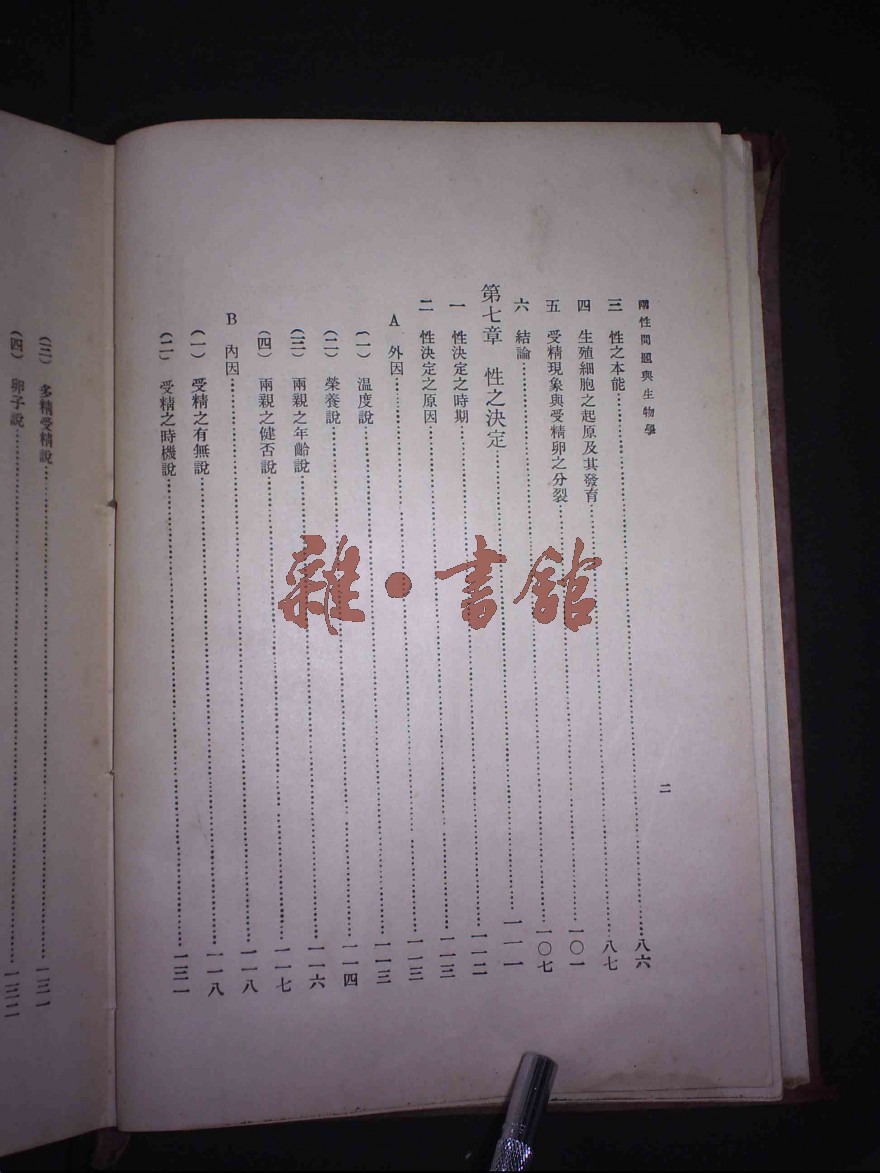 兩性問題與生物學 二
三 性之本能……八六
四 生殖細胞之起原及其發育……八七
五 受精現象與受精卵之分裂……一〇一
六 結論……一〇七
第七章 性之決定……一一一
一 性決定之時期……一一二
二 性決定之原因……一一三
A 外因……一一三
(一) 溫度說……一一三
(二) 榮養說……一一四
(三) 兩親之年齡說……一一六
(四) 兩親之健否說……一一七
B 內因……一一八
(一) 受精之有無說……一一八
(二) 受精之時機說……一三一
(三) 多精受精說……一三一
(四) 卵子說……一三二
雜·書館